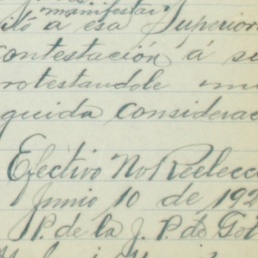 manifestar
itó a esa Superior
contestación á su
rotestandole mu
guida considerac
Efectivo No Reelecc
Junio 10 de 192
P. de la J. P. do Gol